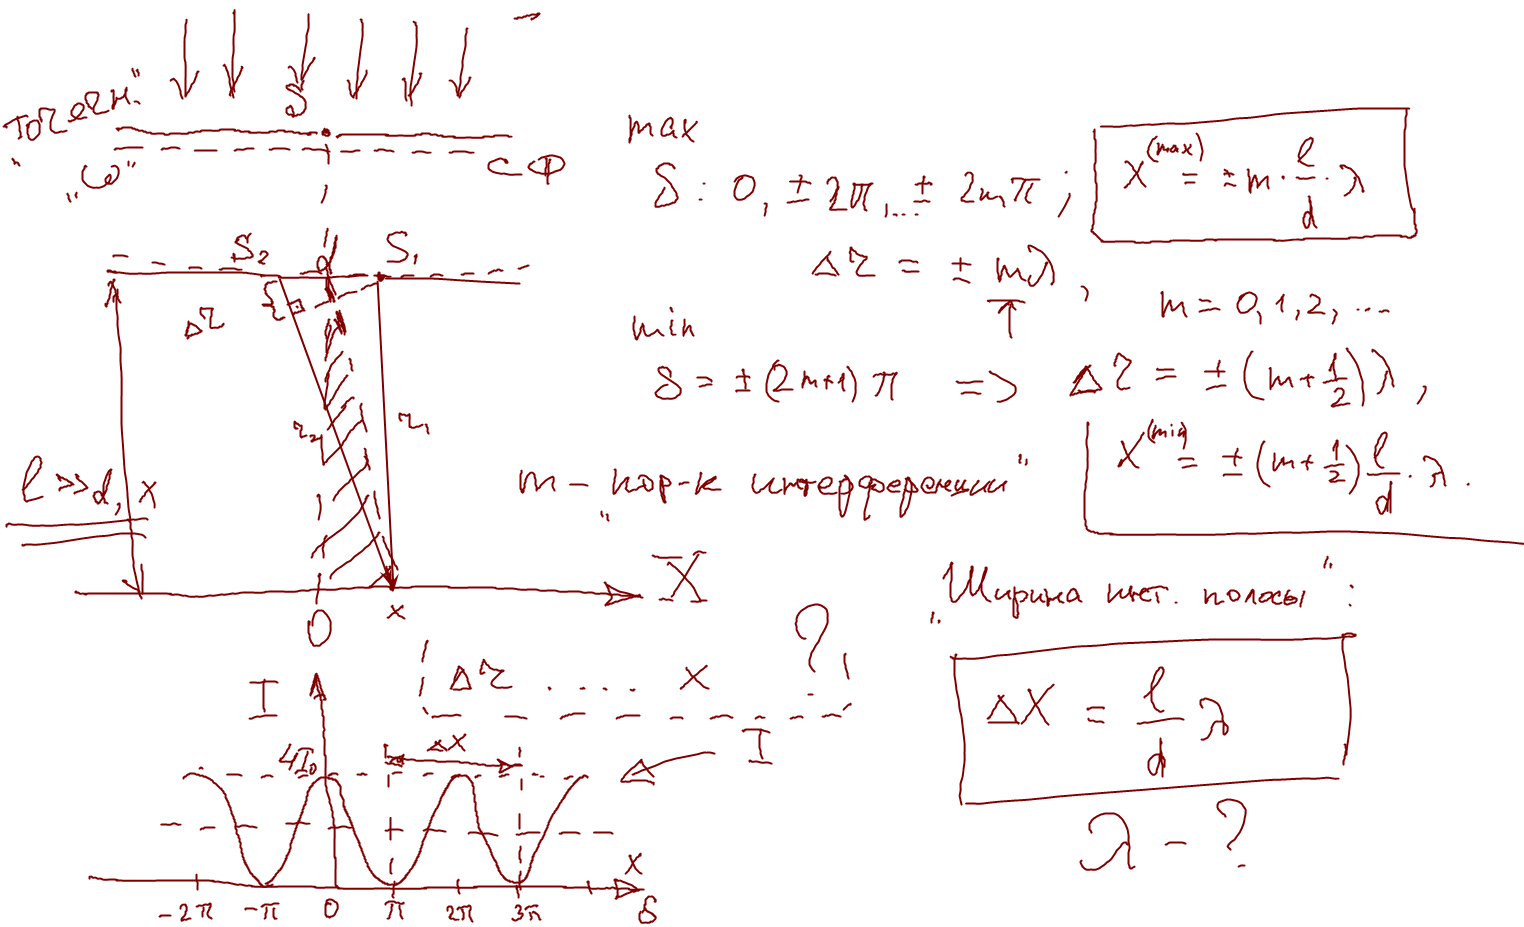 „точечн."
S
„ω"
СФ
S₂ d S₁
Δr
r₂ r₁
l >> d, x
X
O x
Δr ..... x ?
I
I
4I₀
ΔX
x
-2π -π 0 π 2π 3π δ
max
δ : 0, ± 2π, ... ± 2mπ ;
X^(max) = ± m · l/d · λ
Δr = ± mλ ,
m = 0, 1, 2, ...
min
δ = ± (2m+1) π => Δr = ± (m + 1/2) λ ,
X^(min) = ± (m + 1/2) l/d · λ .
m – „пор-к интерференции"
„Ширина инт. полосы" :
ΔX = l/d λ
λ - ?